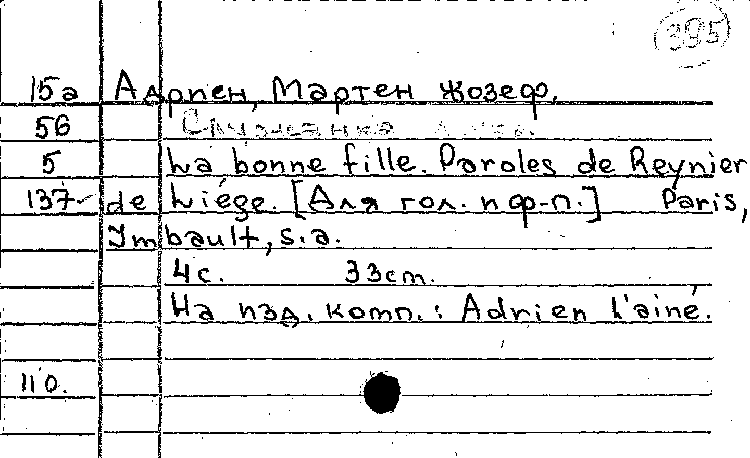 395
15а Адриен, Мартен Жозеф.
5б
5 La bonne fille. Paroles de Reynier
137- de Liége. [Для гол. и ф-п.] Paris,
Imbault, s.a.
4с. 33cm.
На изд. комп.: Adrien l'ainé.
110.